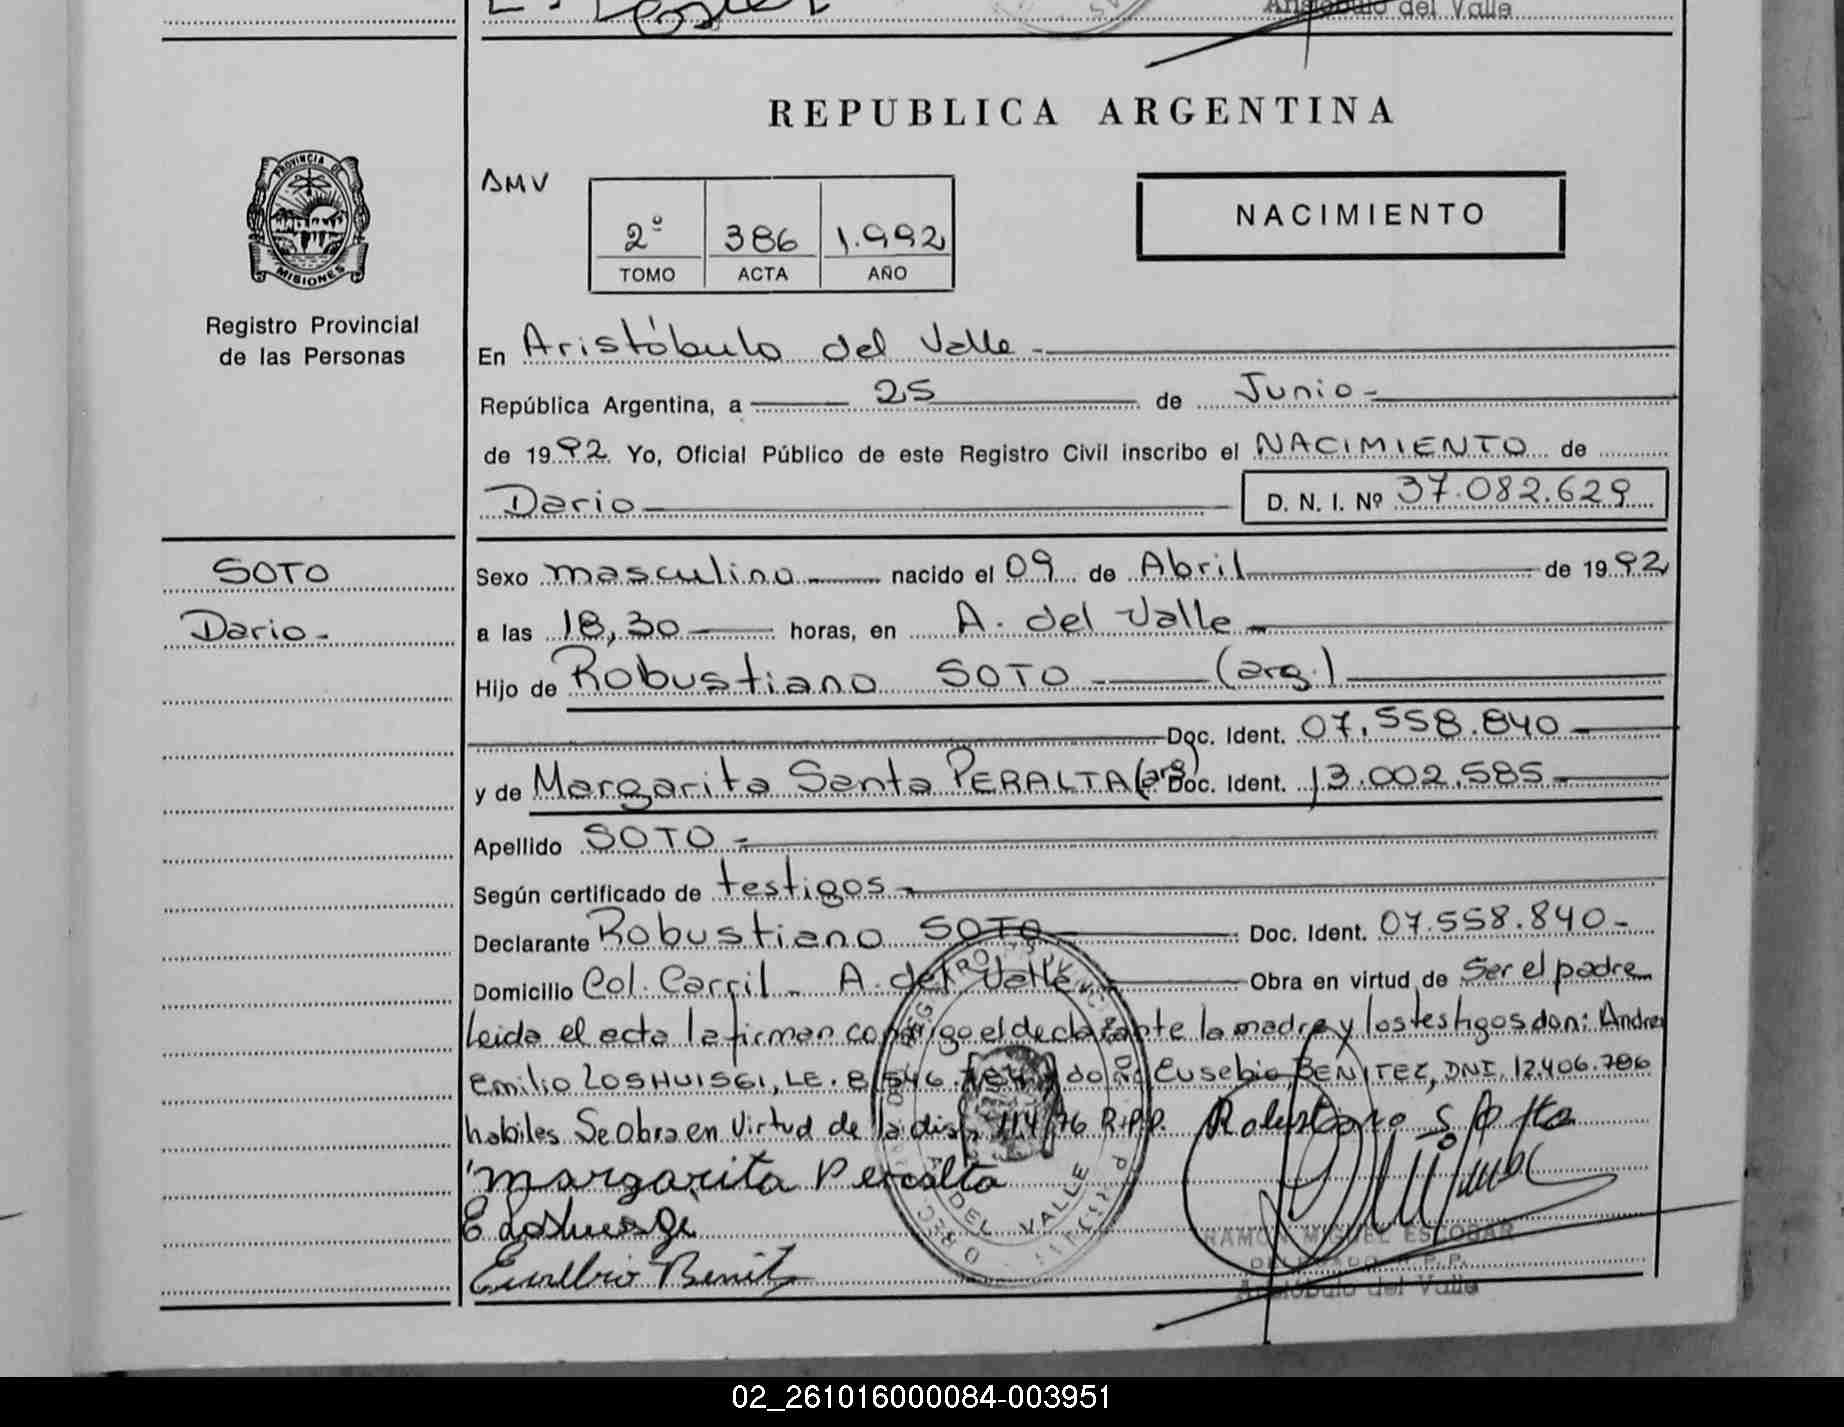 Aristóbulo del Valle
REPUBLICA ARGENTINA
PROVINCIA DE
MISIONES
Registro Provincial
de las Personas
AMV
2º 386 1.992
TOMO ACTA AÑO
NACIMIENTO
En Aristóbulo del Valle
República Argentina, a 25 de Junio
de 1992 Yo, Oficial Público de este Registro Civil inscribo el NACIMIENTO de
Dario D. N. I. Nº 37.082.629
SOTO
Dario
Sexo masculino nacido el 09 de Abril de 1992
a las 18,30 horas, en A. del Valle
Hijo de Robustiano SOTO (arg.)
Doc. Ident. 07.558.840
y de Margarita Santa PERALTA (arg) Doc. Ident. 13.002.585
Apellido SOTO
Según certificado de testigos
Declarante Robustiano SOTO Doc. Ident. 07.558.840
Domicilio Col. Carril - A. del Valle Obra en virtud de Ser el padre
Leida el acta la firman conmigo el declarante la madre y los testigos don: Andres
Emilio LOSHUISGI, LE. don Eusebio BENITEZ, DNI. 12.406.786
habiles Se Obra en Virtud de la disp. 114/76 R.P.P. Robustiano Soto
Margarita Peralta
DEL VALLE
RAMON MIGUEL ESCOBAR
DELEGADO R.P.P.
Aristóbulo del Valle
02_261016000084-003951